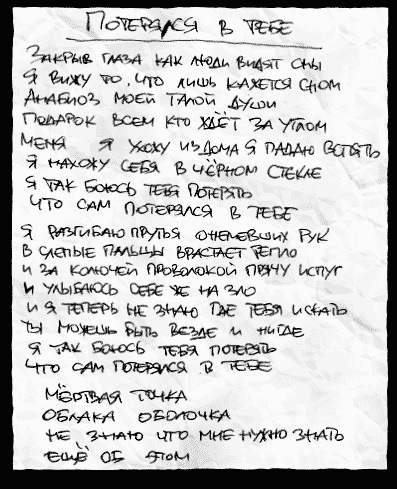 ПОТЕРЯЛСЯ В ТЕБЕ
ЗАКРЫВ ГЛАЗА КАК ЛЮДИ ВИДЯТ СНЫ
Я ВИЖУ ТО, ЧТО ЛИШЬ КАЖЕТСЯ СНОМ
АНАБИОЗ МОЕЙ ТАЛОЙ ДУШИ
ПОДАРОК ВСЕМ КТО ЖДЁТ ЗА УГЛОМ
МЕНЯ Я УХОЖУ ИЗ ДОМА Я ПАДАЮ ВСПЯТЬ
Я НАХОЖУ СЕБЯ В ЧЁРНОМ СТЕКЛЕ
Я ТАК БОЮСЬ ТЕБЯ ПОТЕРЯТЬ
ЧТО САМ ПОТЕРЯЛСЯ В ТЕБЕ
Я РАЗГИБАЮ ПРУТЬЯ ОНЕМЕВШИХ РУК
В СЛЕПЫЕ ПАЛЬЦЫ ВРАСТАЕТ ТЕПЛО
И ЗА КОЛЮЧЕЙ ПРОВОЛОКОЙ ПРЯЧУ ИСПУГ
И УЛЫБАЮСЬ СЕБЕ ЖЕ НА ЗЛО
И Я ТЕПЕРЬ НЕ ЗНАЮ ГДЕ ТЕБЯ ИСКАТЬ
ТЫ МОЖЕШЬ БЫТЬ ВЕЗДЕ И НИГДЕ
Я ТАК БОЮСЬ ТЕБЯ ПОТЕРЯТЬ
ЧТО САМ ПОТЕРЯЛСЯ В ТЕБЕ
МЁРТВАЯ ТОЧКА
ОБЛАКА ОБОЛОЧКА
НЕ ЗНАЮ ЧТО МНЕ НУЖНО ЗНАТЬ
ЕЩЁ ОБ ЭТОМ